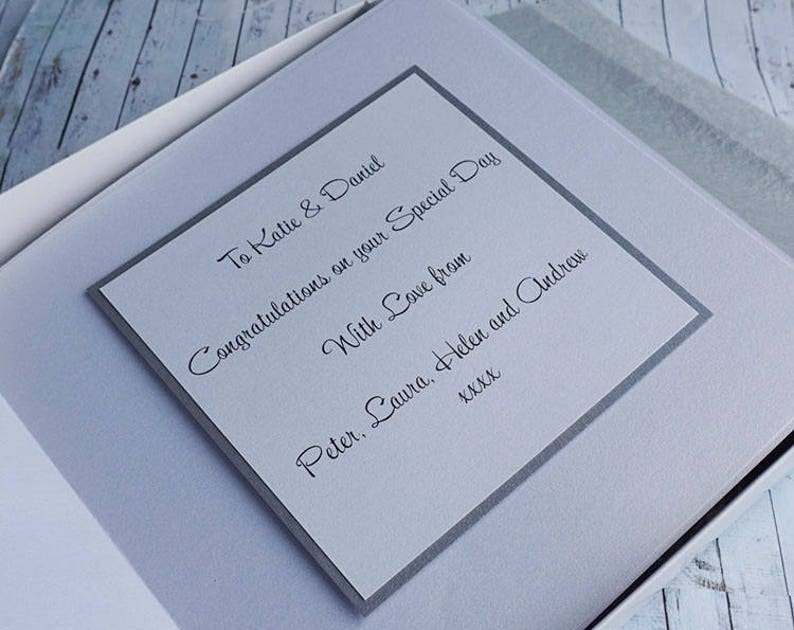 To Katie & Daniel
Congratulations on your Special Day
With Love from
Peter, Laura, Helen and Andrew
xxxx